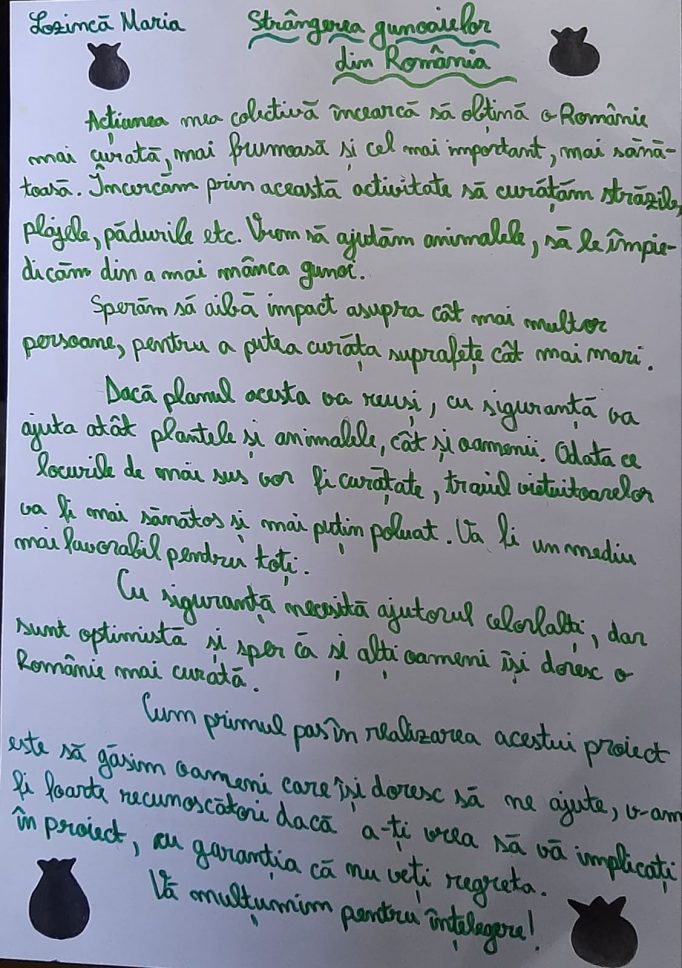 Lozincă Maria
Strângerea gunoaielor
din România
Acțiunea mea colectivă încearcă să obțină o Românie
mai curată, mai frumoasă și cel mai important, mai sănă-
toasă. Încercăm prin această activitate să curățăm străzile,
plajele, pădurile etc. Vrem să ajutăm animalele, să le împie-
dicăm din a mai mânca gunoi.
Sperăm să aibă impact asupra cât mai multor
persoane, pentru a putea curăța suprafețe cât mai mari.
Dacă planul acesta va reuși, cu siguranță va
ajuta atât plantele și animalele, cât și oamenii. Odata ce
locurile de mai sus vor fi curățate, traiul viețuitoarelor
va fi mai sănătos și mai puțin poluat. Va fi un mediu
mai favorabil pendru toți.
Cu siguranță necesită ajutorul celorlalți, dar
sunt optimistă și sper că și alți oameni își doresc o
Românie mai curată.
Cum primul pas în realizarea acestui proiect
este să găsim oameni care își doresc să ne ajute, v-am
fi foarte recunoscători dacă a-ți vrea să vă implicați
în proiect, cu garanția că nu veți regreta.
Vă mulțumim pentru înțelegere!